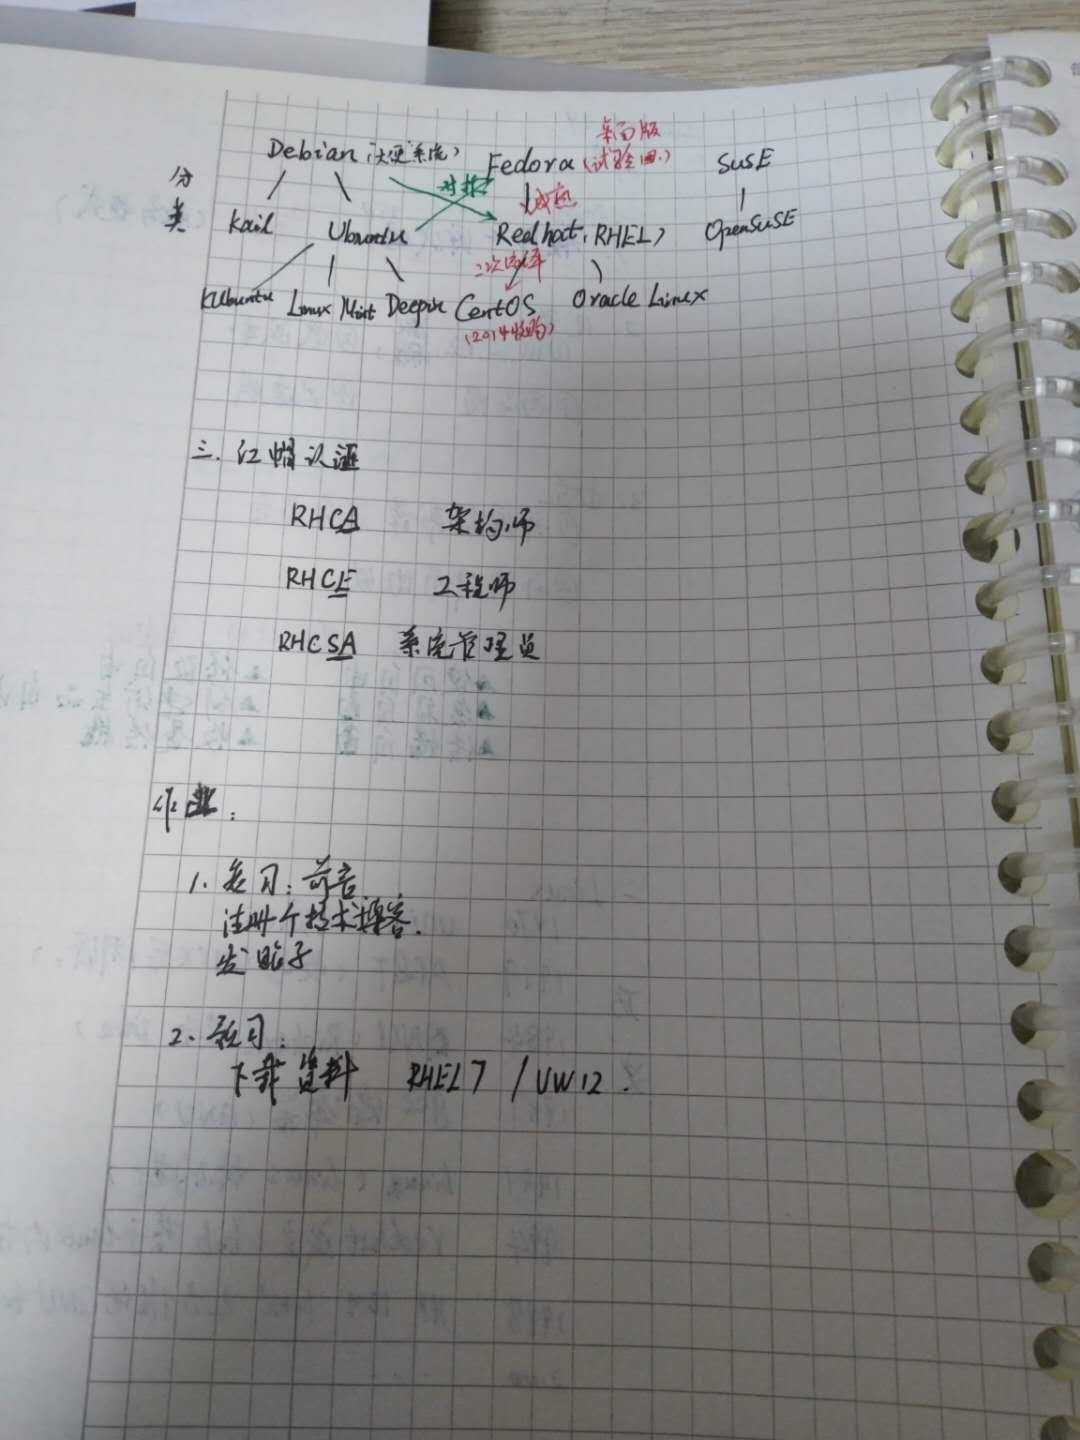 分类
Debian (大便系统) Fedora (试验田) SUSE
桌面版
对标
成熟
Kail Ubuntu Redhat (RHEL) OpenSUSE
二次编译
KUbuntu Linux Mint Deepin CentOS Oracle Linux
(2014收购)
三. 红帽认证
RHCA 架构师
RHCE 工程师
RHCSA 系统管理员
作业:
1. 复习: 前言
注册个技术博客.
发帖子
2. 预习:
下载资料 RHEL7 / VW12.